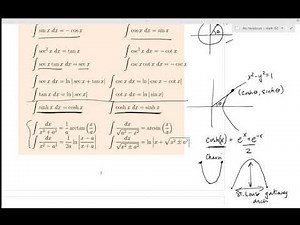 ∫ sin x dx = − cos x    ∫ cos x dx = sin x
∫ sec² x dx = tan x    ∫ csc² x dx = − cot x
∫ sec x tan x dx = sec x    ∫ csc x cot x dx = − csc x
∫ sec x dx = ln |sec x + tan x|    ∫ csc x dx = ln |csc x − cot x|
∫ tan x dx = ln |sec x|    ∫ cot x dx = ln |sin x|
∫ sinh x dx = cosh x    ∫ cosh x dx = sinh x
∫ dx / (x² + a²) = 1/a arctan (x/a)    ∫ dx / √(a² − x²) = arcsin (x/a)
∫ dx / (x² − a²) = 1/2a ln |(x − a)/(x + a)|    ∫ dx / √(x² ± a²) = ln |x + √(x² ± a²)|
1
x²−y²=1
cosh(x) = (eˣ + e⁻ˣ)/2
Chain
St. Louis gateway
arch